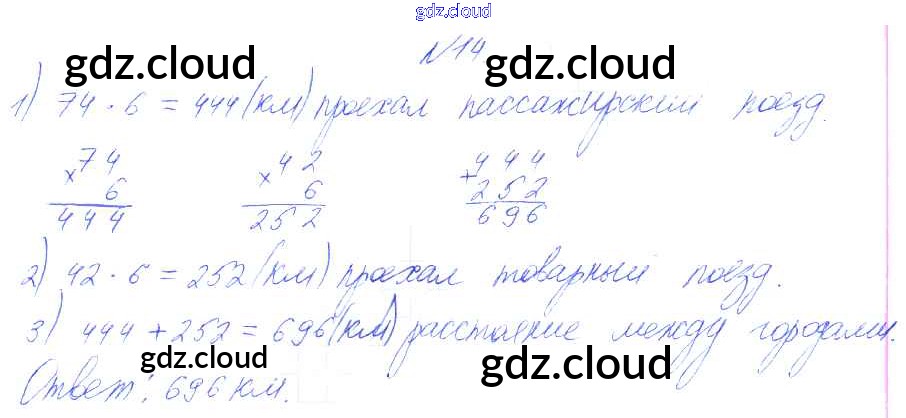 gdz.cloud
№14
gdz.cloud gdz.cloud
1) 74 · 6 = 444 (км) проехал пассажирский поезд.
74 42 444
× 6 × 6 + 252
444 252 696
2) 42 · 6 = 252 (км) проехал товарный поезд.
3) 444 + 252 = 696 (км) расстояние между городами.
gdz.cloud gdz.cloud
Ответ: 696 км.